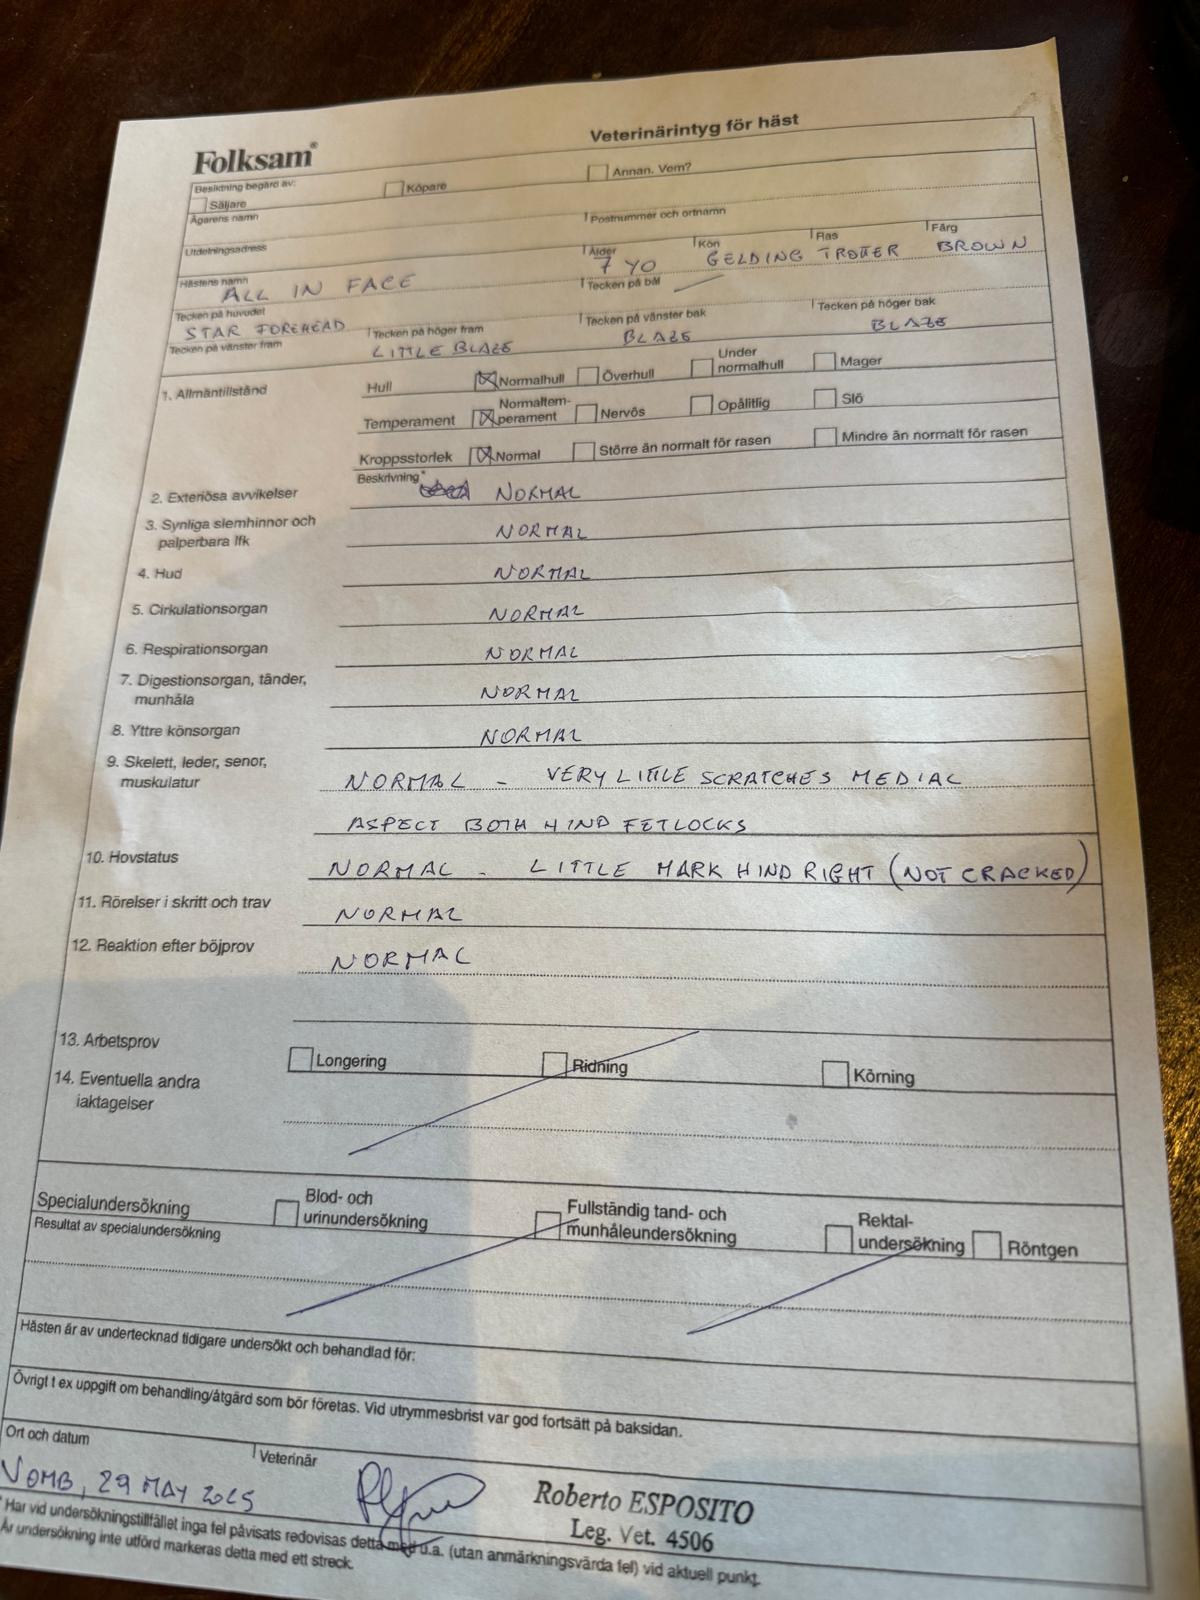 Folksam®
Veterinärintyg för häst
Besiktning begärd av:
Säljare
Köpare
Annan. Vem?
Ägarens namn
Postnummer och ortnamn
Utdelningsadress
Ålder
Kön
Ras
Färg
7 YO GELDING TROTTER BROWN
Hästens namn
ALL IN FACE
Tecken på bål
Tecken på huvudet
STAR FOREHEAD
Tecken på höger fram
LITTLE BLAZE
Tecken på vänster bak
BLAZE
Tecken på höger bak
BLAZE
Tecken på vänster fram
1. Allmäntillstånd
Hull
Normalhull
Överhull
Under
normalhull
Mager
Temperament
Normaltem-
perament
Nervös
Opålitlig
Slö
Kroppsstorlek
Normal
Större än normalt för rasen
Mindre än normalt för rasen
Beskrivning*
2. Exteriösa avvikelser NORMAL
3. Synliga slemhinnor och
palperbara lfk NORMAL
4. Hud NORMAL
5. Cirkulationsorgan NORMAL
6. Respirationsorgan NORMAL
7. Digestionsorgan, tänder,
munhåla NORMAL
8. Yttre könsorgan NORMAL
9. Skelett, leder, senor,
muskulatur NORMAL - VERY LITTLE SCRATCHES MEDIAL
ASPECT BOTH HIND FETLOCKS
10. Hovstatus NORMAL - LITTLE MARK HIND RIGHT (NOT CRACKED)
11. Rörelser i skritt och trav NORMAL
12. Reaktion efter böjprov NORMAL
13. Arbetsprov
Longering
Ridning
Körning
14. Eventuella andra
iaktagelser
Specialundersökning
Blod- och
urinundersökning
Fullständig tand- och
munhåleundersökning
Rektal-
undersökning
Röntgen
Resultat av specialundersökning
Hästen är av undertecknad tidigare undersökt och behandlad för:
Övrigt t ex uppgift om behandling/åtgärd som bör företas. Vid utrymmesbrist var god fortsätt på baksidan.
Ort och datum
Veterinär
VOMB, 29 MAY 2025
Roberto ESPOSITO
Leg. Vet. 4506
* Har vid undersökningstillfället inga fel påvisats redovisas detta med u.a. (utan anmärkningsvärda fel) vid aktuell punkt.
Är undersökning inte utförd markeras detta med ett streck.